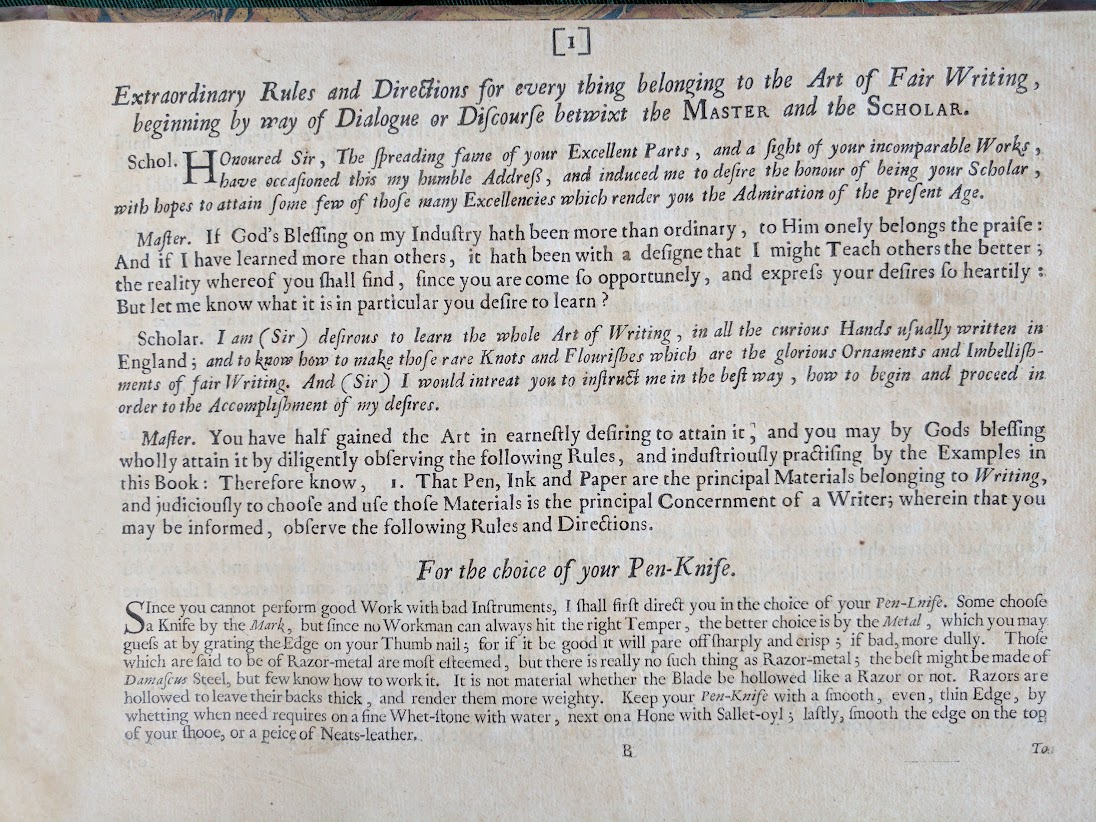 [1]
Extraordinary Rules and Directions for every thing belonging to the Art of Fair Writing,
beginning by way of Dialogue or Diſcourſe betwixt the MASTER and the SCHOLAR.
Schol. HOnoured Sir, The ſpreading fame of your Excellent Parts, and a ſight of your incomparable Works,
have occaſioned this my humble Addreß, and induced me to deſire the honour of being your Scholar,
with hopes to attain ſome few of thoſe many Excellencies which render you the Admiration of the preſent Age.
Maſter. If God's Bleſſing on my Induſtry hath been more than ordinary, to Him onely belongs the praiſe:
And if I have learned more than others, it hath been with a deſigne that I might Teach others the better;
the reality whereof you ſhall find, ſince you are come ſo opportunely, and expreſs your deſires ſo heartily:
But let me know what it is in particular you deſire to learn?
Scholar. I am (Sir) deſirous to learn the whole Art of Writing, in all the curious Hands uſually written in
England; and to know how to make thoſe rare Knots and Flouriſhes which are the glorious Ornaments and Imbelliſh-
ments of fair Writing. And (Sir) I would intreat you to inſtruct me in the beſt way, how to begin and proceed in
order to the Accompliſhment of my deſires.
Maſter. You have half gained the Art in earneſtly deſiring to attain it; and you may by Gods bleſſing
wholly attain it by diligently obſerving the following Rules, and induſtriouſly practiſing by the Examples in
this Book: Therefore know, 1. That Pen, Ink and Paper are the principal Materials belonging to Writing,
and judiciouſly to chooſe and uſe thoſe Materials is the principal Concernment of a Writer; wherein that you
may be informed, obſerve the following Rules and Directions.
For the choice of your Pen-Knife.
SInce you cannot perform good Work with bad Inſtruments, I ſhall firſt direct you in the choice of your Pen-Lnife. Some chooſe
a Knife by the Mark, but ſince no Workman can always hit the right Temper, the better choice is by the Metal, which you may
gueſs at by grating the Edge on your Thumb nail; for if it be good it will pare off ſharply and crisp; if bad, more dully. Thoſe
which are ſaid to be of Razor-metal are moſt eſteemed, but there is really no ſuch thing as Razor-metal; the beſt might be made of
Damaſcus Steel, but few know how to work it. It is not material whether the Blade be hollowed like a Razor or not. Razors are
hollowed to leave their backs thick, and render them more weighty. Keep your Pen-Knife with a ſmooth, even, thin Edge, by
whetting when need requires on a fine Whet-ſtone with water, next on a Hone with Sallet-oyl; laſtly, ſmooth the edge on the top
of your ſhooe, or a peice of Neats-leather.
B
To